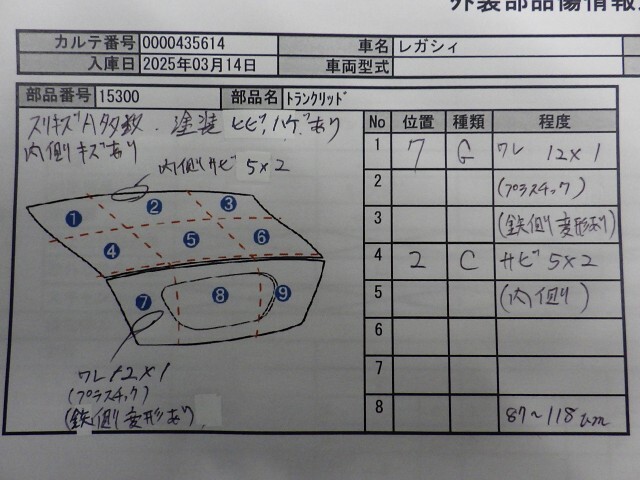 外装部品傷情報
カルテ番号 0000435614 車名 レガシィ
入庫日 2025年03月14日 車両型式
部品番号 15300 部品名 ﾄﾗﾝｸﾘｯﾄﾞ
スリキズA多数．塗装ヒビ、ハゲあり
内側キズあり
内側サビ 5×2
1 2 3
4 5 6
7 8 9
ワレ 12×1
(プラスチック)
(鉄側変形あり)
No 位置 種類 程度
1 7 G ワレ 12×1
2 (プラスチック)
3 (鉄側変形あり)
4 2 C サビ 5×2
5 (内側)
6
7
8 87～118μm